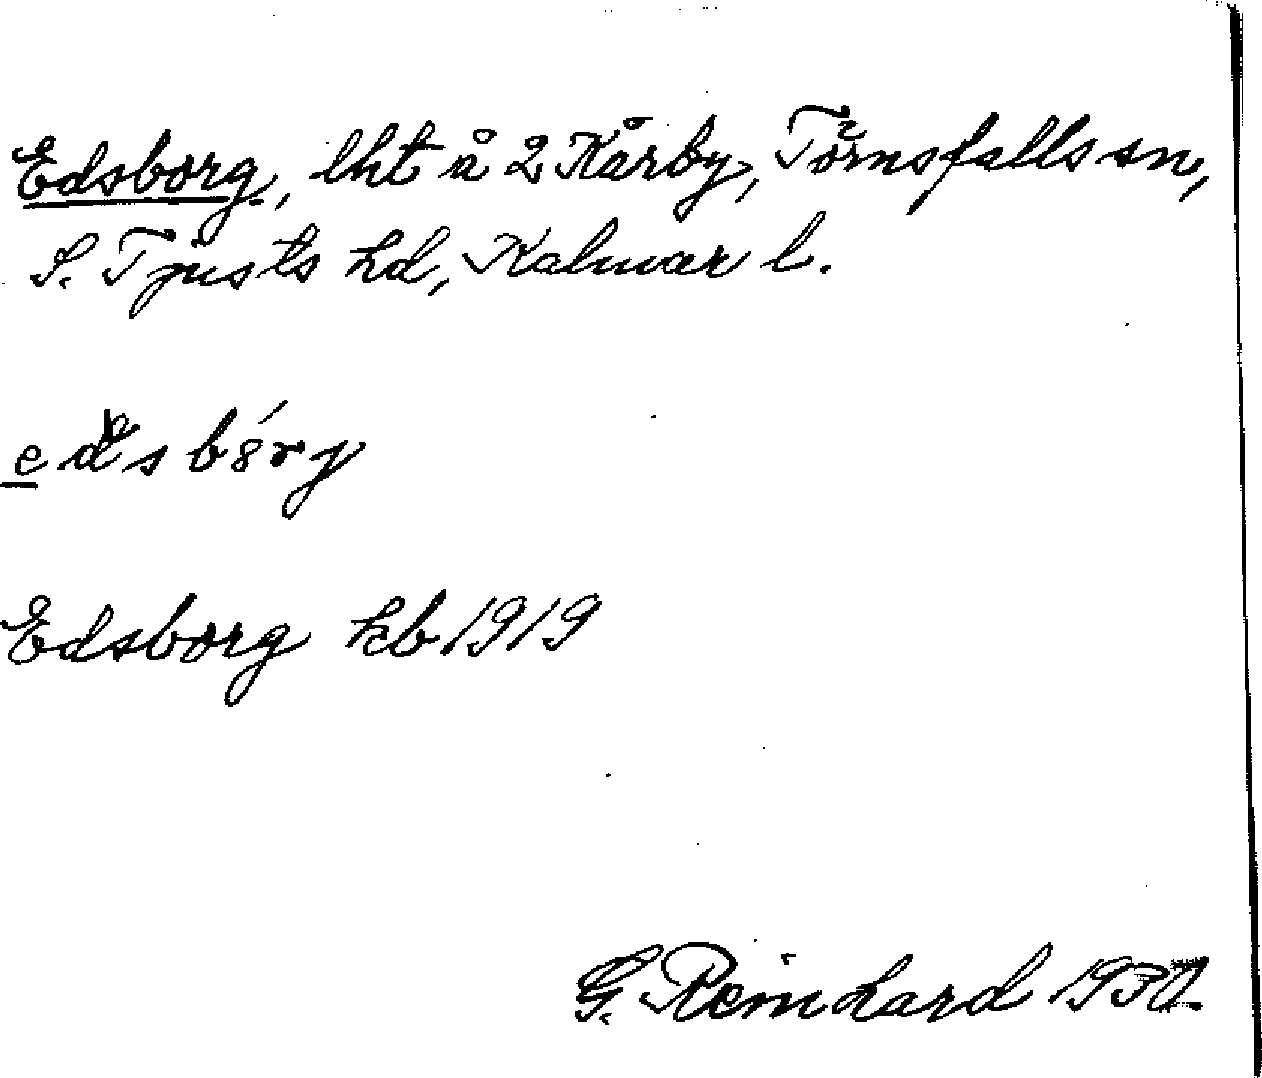 Edsborg, lht å 2 Kårby, Törnsfalls sn,
S. Tjusts hd, Kalmar l.
edsbórj
Edsborg kb 1919
G. Reinhard